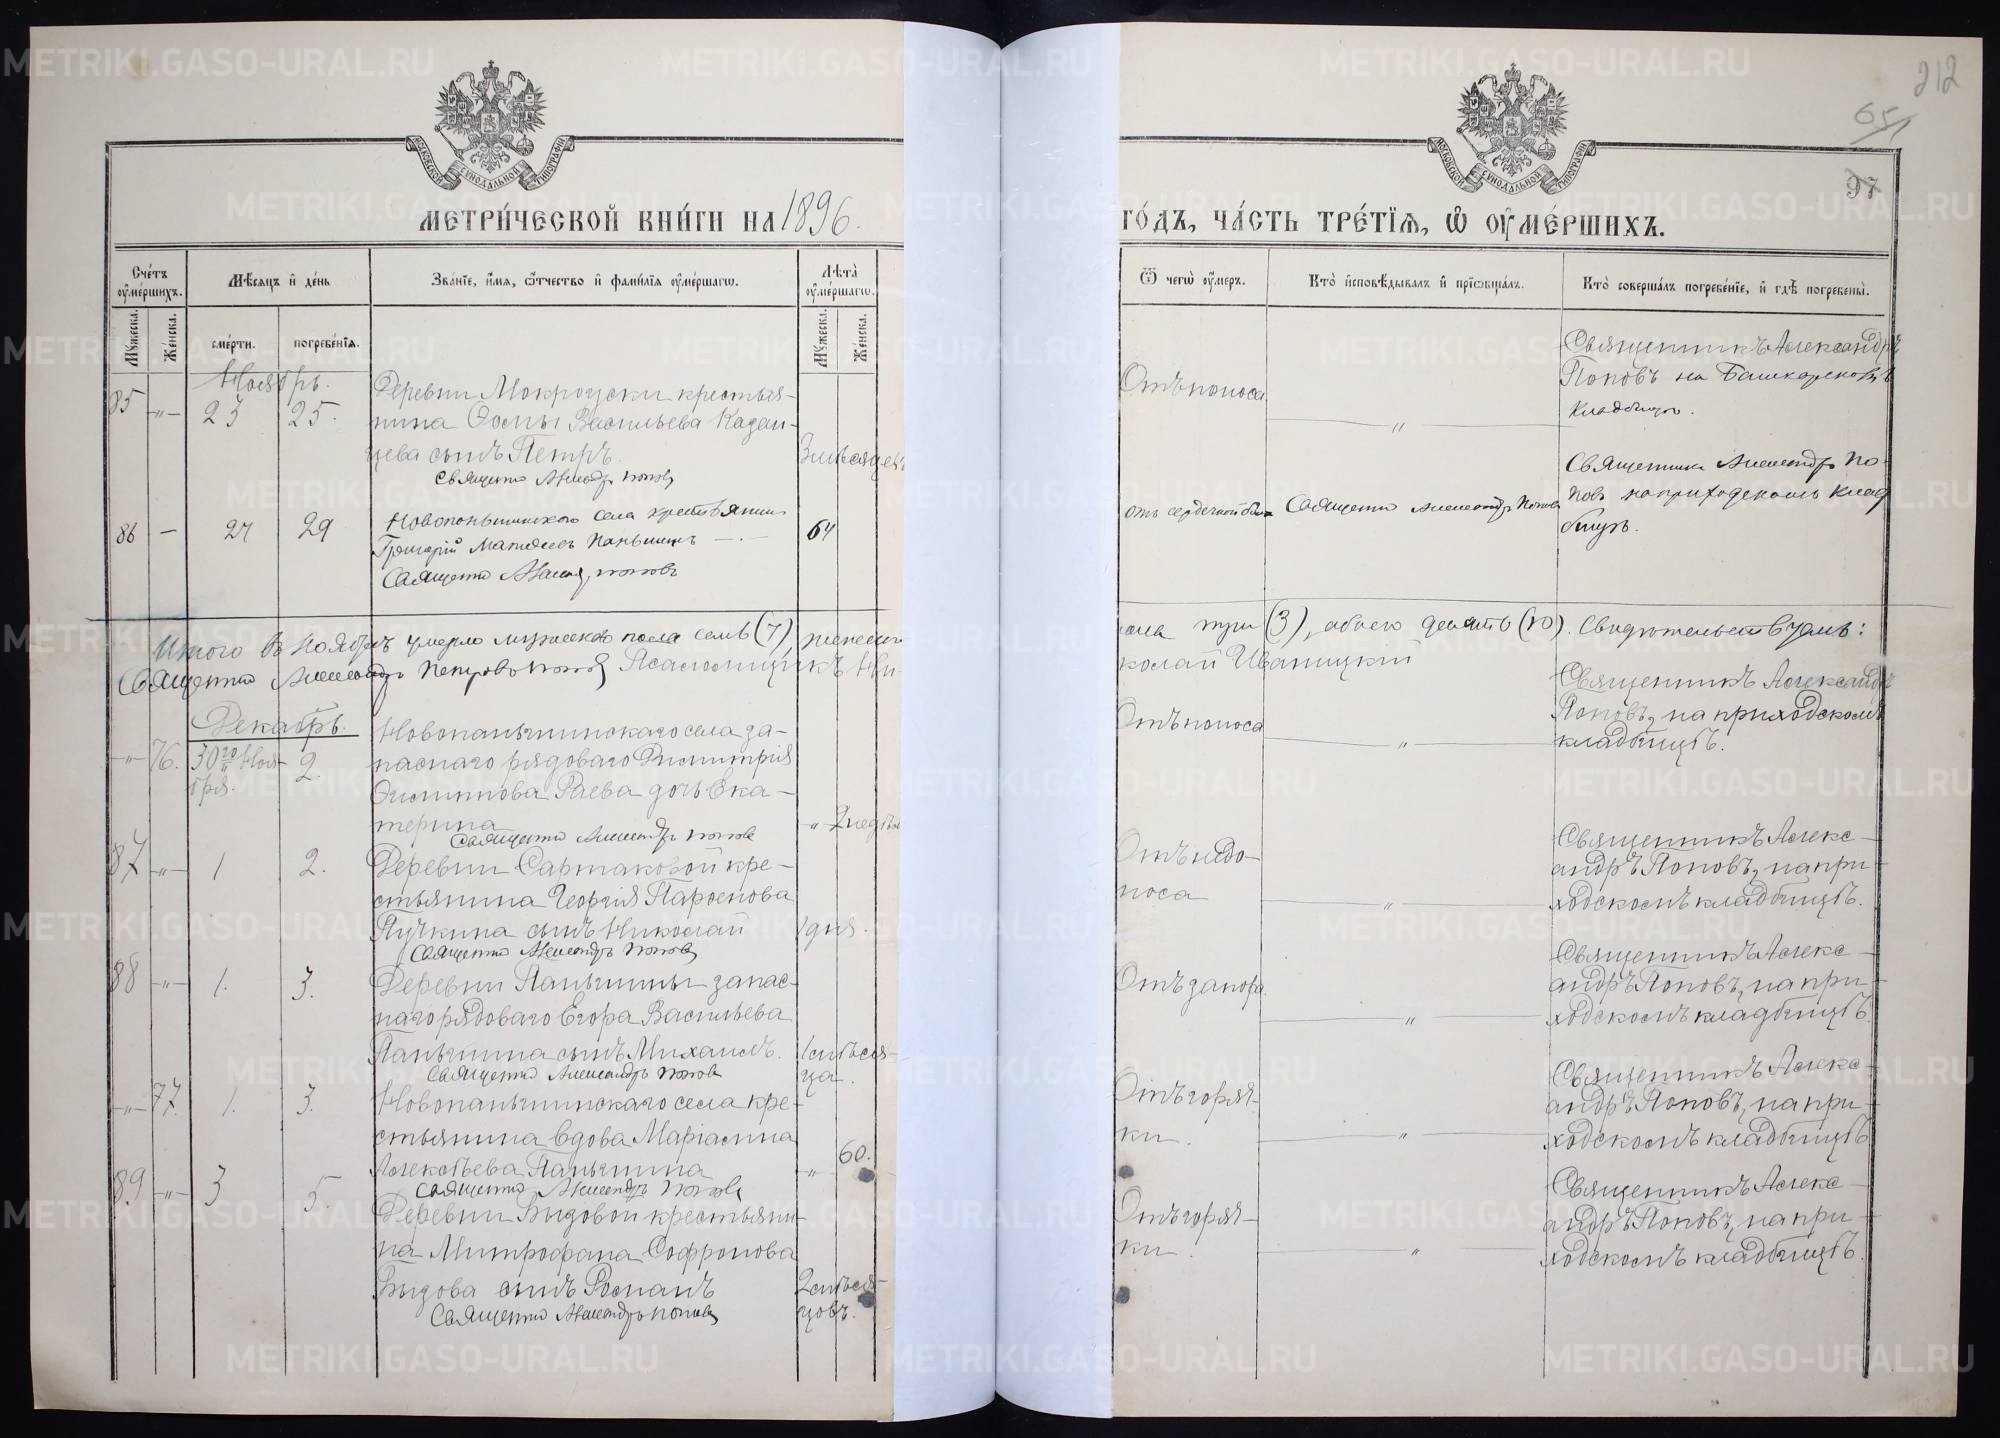 212
65
97
МОСКОВСКОЙ СѴНОДАЛЬНОЙ ТИПОГРАФІИ
МОСКОВСКОЙ СѴНОДАЛЬНОЙ ТИПОГРАФІИ
МЕТРИ́ЧЕСКОЙ КНИ́ГИ НА 1896.
ГО́ДЪ, ЧА́СТЬ ТРЕ́ТІѦ, Ѽ ОУ҆МЕ́РШИХЪ.
Сче́тъ оу҆ме́ршихъ.
Мꙋжеска.
Же́нска.
Мѣ́сяцъ и҆ де́нь
сме́рти.
погребе́нїѧ.
Зва́нїе, и҆́мѧ, ѻ҆́тчество и҆ фами́лїѧ оу҆ме́ршагѡ.
Лѣ́та оу҆ме́ршагѡ.
Мꙋжеска.
Же́нска.
Ѿ чегѡ̀ оу҆́меръ.
Кто̀ и҆сповѣ́дывалъ и҆ прїѡбща́лъ.
Кто̀ соверша́лъ погребе́нїе, и҆ гдѣ̀ погребены̀.
Ноябрь.
85 -"- 23 25.
Деревни Мокроуски крестья-
нина Ѳомы Васильева Казан-
цева сынъ Петръ.
Священно Александръ Попов
3 мѣсяцевъ
Отъ поноса
"
Священникъ Александръ
Поповъ на Башкарскомъ
кладбищѣ.
86 — 27 29
Новопаньшинского села крестьянин
Григорий Матвеевъ Паньшинъ —.—
Священно Александръ Поповъ
64
отъ сердечной боли
Священно Александръ Попов
Священник Александръ По-
повъ на приходскомъ клад
бищѣ.
Итого въ Ноябрѣ умерло мужеского пола семь (7), женского
пола три (3), обоего десять (10). Свидѣтельствуемъ:
Священно Александръ Петровъ Попов Псаломщикъ Ни-
колай Иваницкій
Декабрь.
-"- 76. 30го Ноя-
бря. 2.
Новопаньшинскаго села за-
паснаго рядоваго Димитрія
Филиппова Раева дочь Ека-
терина
Священно Александръ Попов
" 2 недѣли
Отъ поноса
"
Священникъ Александръ
Поповъ, на приходскомъ
кладбищѣ.
87 -"- 1 2.
Деревни Сартаковой кре-
стьянина Георгія Парѳенова
Пучкина сынъ Николай
Священно Александръ Попов
1 дня.
Отъ недо-
носа
"
Священникъ Алекс-
андръ Поповъ, на при-
ходскомъ кладбищѣ.
88 -"- 1. 3.
Деревни Паньшины запас-
наго рядоваго Егора Васильева
Паньшина сынъ Михаилъ.
Священно Александръ Попов
1 мѣся-
ца.
Отъ запора
"
Священникъ Алекс-
андръ Поповъ, на при-
ходскомъ кладбищѣ.
-"- 77. 1. 3.
Новопаньшинскаго села кре-
стьянина вдова Маріамна
Алексѣева Паньшина
Священно Александръ Попов
" 60.
Отъ горяч-
ки.
"
Священникъ Алекс-
андръ Поповъ, на при-
ходскомъ кладбищѣ
89 -"- 3 5.
Деревни Быдовой крестьяни-
на Митрофана Софронова
Быдова сынъ Романъ
Священно Александръ Попов
2 мѣся-
цовъ.
Отъ горяч-
ки.
"
Священникъ Алекс-
андръ Поповъ, на при-
ходскомъ кладбищѣ.
METRIKI.GASO-URAL.RU